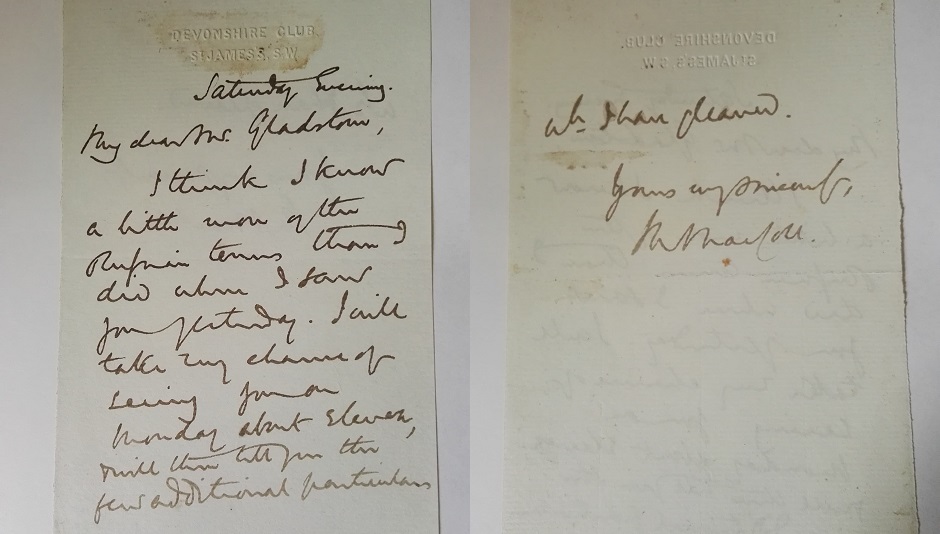 DEVONSHIRE CLUB
ST JAMES'S, S.W.
Saturday Evening.
My dear Mr. Gladstone,
I think I know
a little more of the
Russian terms than I
did when I saw
you yesterday. I will
take my chance of
seeing you on
Monday about Eleven,
& will then tell you the
few additional particulars
DEVONSHIRE CLUB.
ST JAMES'S, S.W.
wh. I have gleaned.
Yours very sincerely,